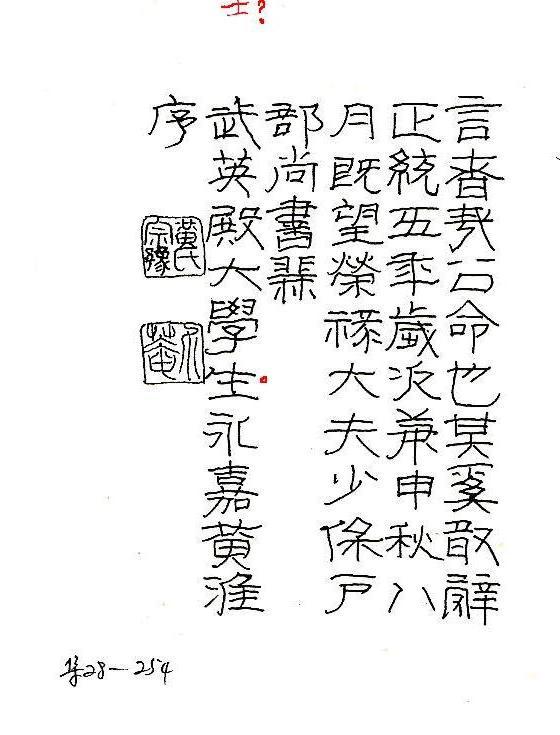 士?
言者哉公命也其奚敢辭
正統五年歲次庚申秋八
月既望榮祿大夫少保戶
部尚書兼
武英殿大學生永嘉黃淮
序
黃氏宗豫
介菴
集28—254